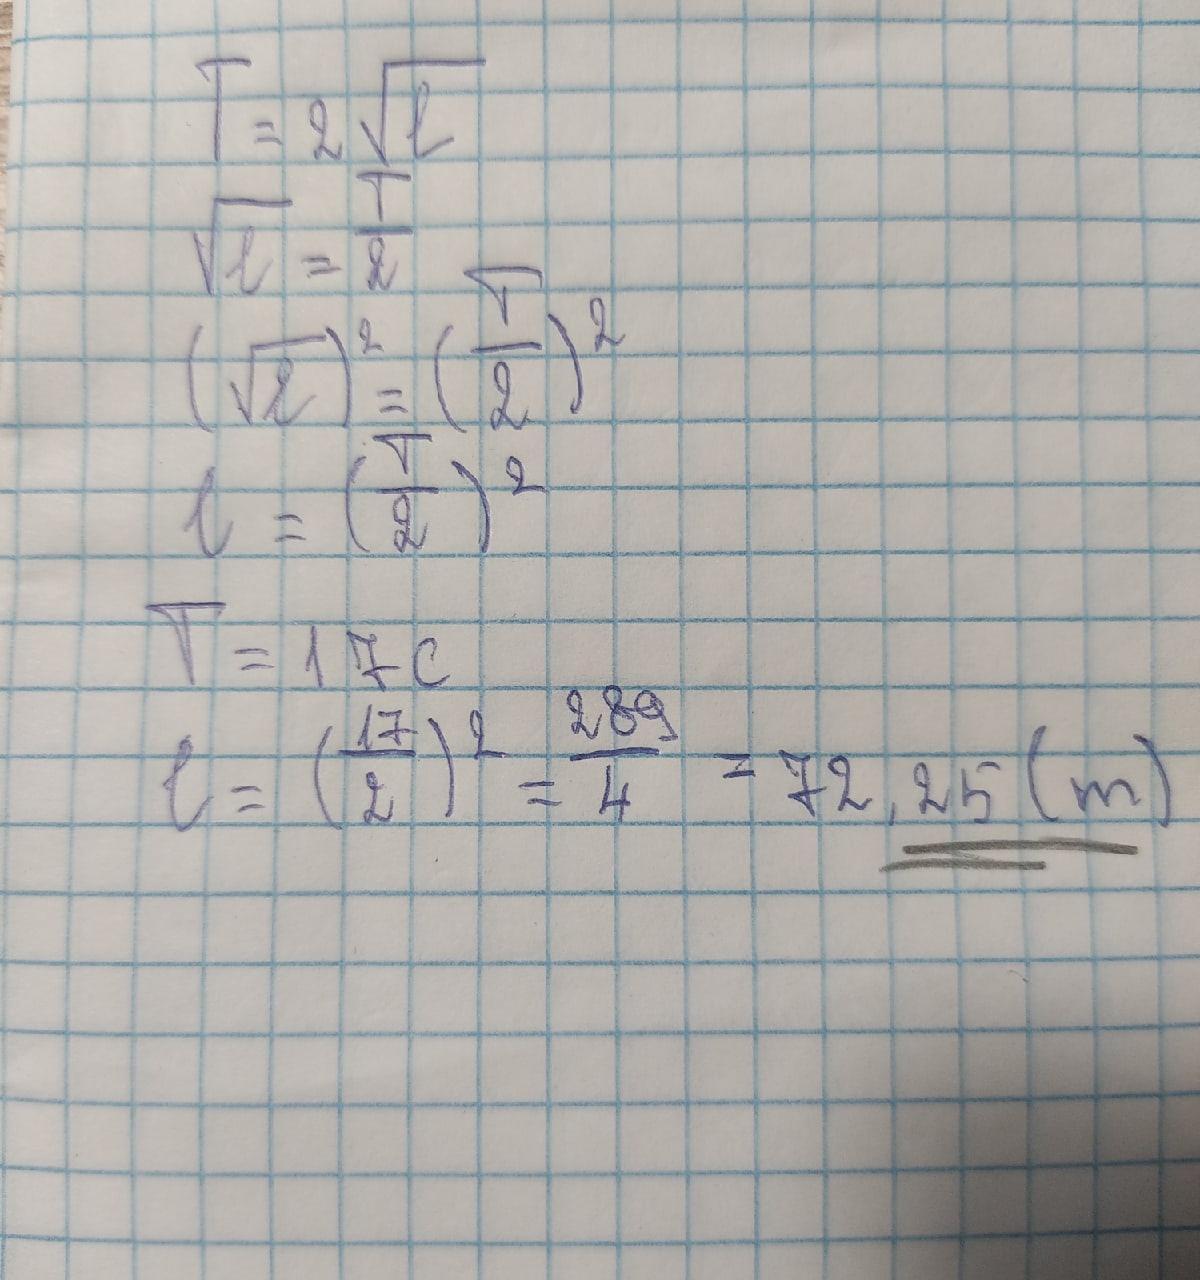 T = 2√l
√l = T/2
(√l)² = (T/2)²
l = (T/2)²
T = 17 c
l = (17/2)² = 289/4 = 72,25 (m)